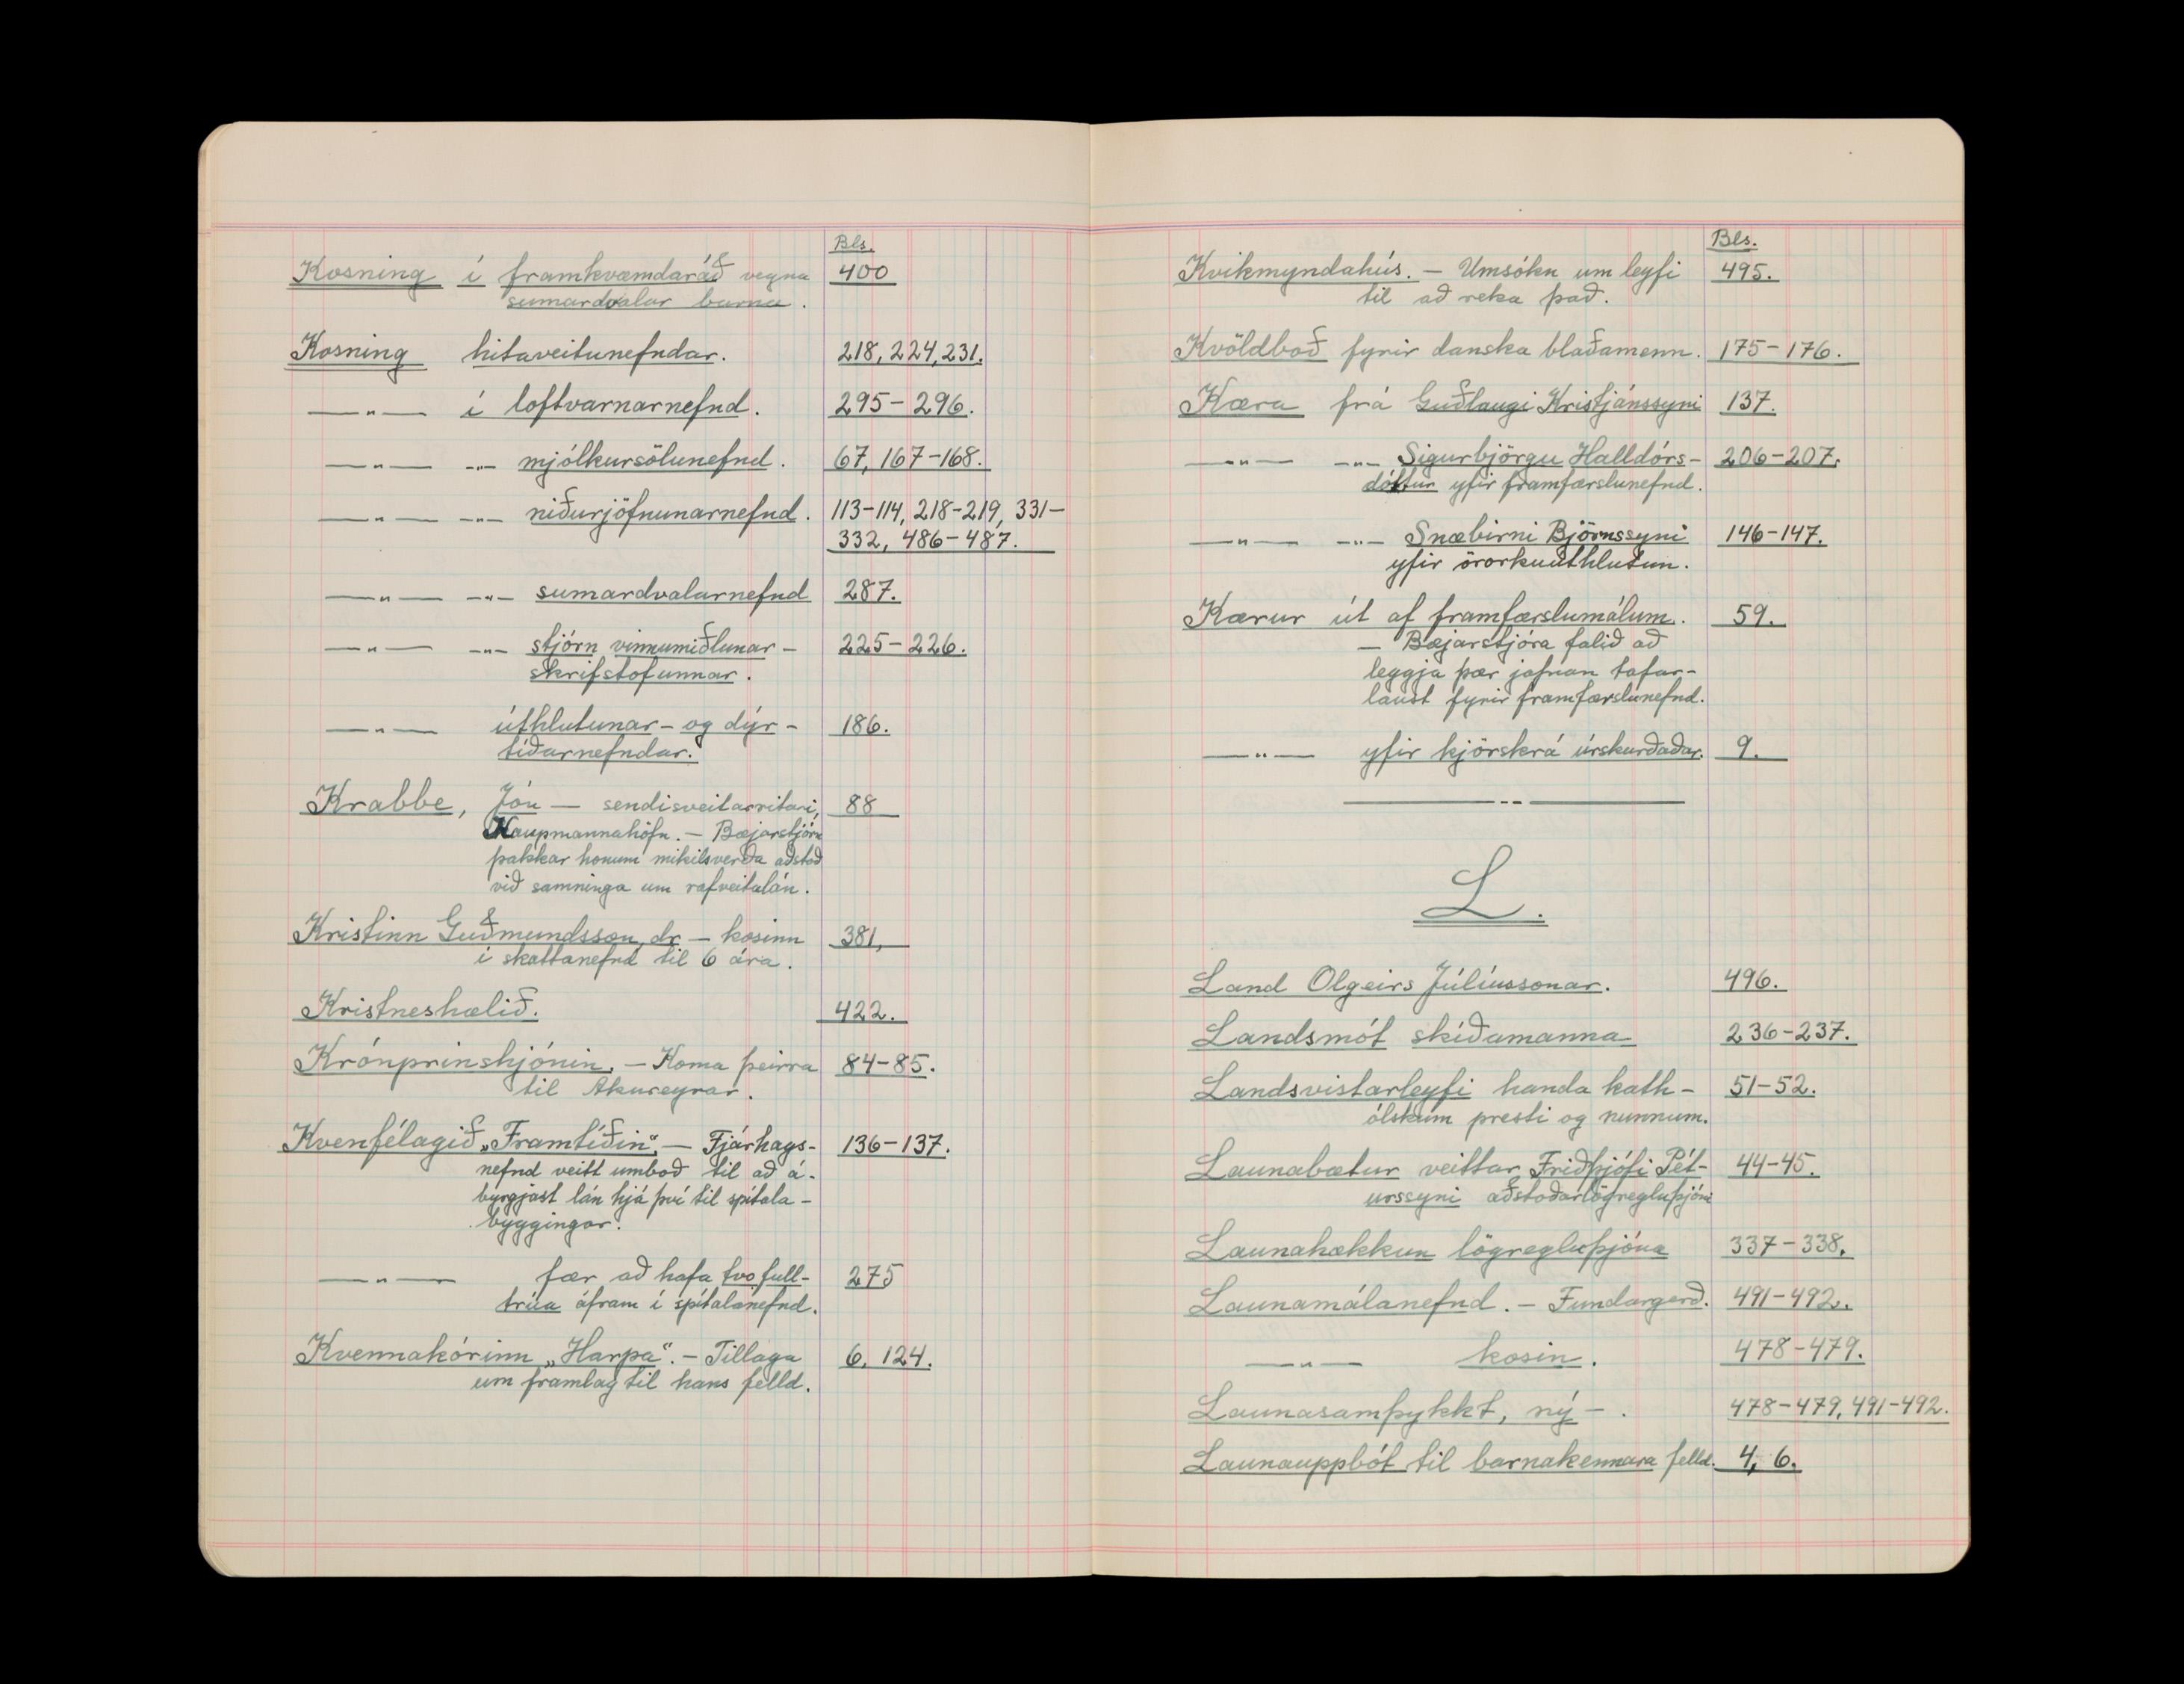 Bls.
Kosning í framkvæmdaráð vegna 400
sumardvalar barna.
Kosning hitaveitunefndar. 218, 224, 231.
—„— í loftvarnarnefnd. 295-296.
—„— -„- mjólkursölunefnd. 67, 167-168.
—„— -„- niðurjöfnunarnefnd. 113-114, 218-219, 331-
332, 486-487.
—„— -„- sumardvalarnefnd 287.
—„— -„- stjórn vinnumiðlunar- 225-226.
skrifstofunnar.
—„— úthlutunar- og dýr- 186.
tíðarnefndar.
Krabbe, Jón — sendisveitarritari, 88
Kaupmannahöfn. - Bæjarstjórn
þakkar honum mikilsverða aðstoð
við samninga um rafveitulán.
Kristinn Guðmundsson, dr - kosinn 381,
í skattanefnd til 6 ára.
Kristneshælið. 422.
Krónprinshjónin. - Koma þeirra 84-85.
til Akureyrar.
Kvenfélagið „Framtíðin“. - Fjárhags- 136-137.
nefnd veitt umboð til að á-
byrgjast lán hjá því til spítala-
byggingar.
—„— fær að hafa tvo full- 275
trúa áfram í spítalanefnd.
Kvennakórinn „Harpa“. - Tillaga 6, 124.
um framlag til hans felld.
Bls.
Kvikmyndahús. - Umsókn um leyfi 495.
til að reka það.
Kvöldboð fyrir danska blaðamenn. 175-176.
Kæra frá Guðlaugi Kristjánssyni 137.
—„— -„- Sigurbjörgu Halldórs- 206-207.
dóttur yfir framfærslunefnd.
—„— -„- Snæbirni Björnssyni 146-147.
yfir örorkuúthlutun.
Kærur út af framfærslumálum. 59.
- Bæjarstjóra falið að
leggja þær jafnan tafar-
laust fyrir framfærslunefnd.
—„— yfir kjörskrá úrskurðaðar. 9.
L.
Land Olgeirs Júlíussonar. 496.
Landsmót skíðamanna 236-237.
Landsvistarleyfi handa kath- 51-52.
ólskum presti og nunnum.
Launabætur veittar Friðþjófi Pét- 44-45.
urssyni aðstoðarlögregluþjóni
Launahækkun lögregluþjóna 337-338.
Launamálanefnd. - Fundargerð. 491-492.
—„— kosin. 478-479.
Launasamþykkt, ný - . 478-479, 491-492.
Launauppbót til barnakennara felld. 4, 6.